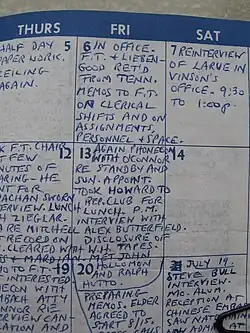 THURS
FRI
SAT
HALF DAY 5
PAPER WORK.
CEILING
AGAIN.
6 IN OFFICE.
F.T. + LIEBEN-
GOOD RET'D
FROM TENN.
MEMOS TO F.T.
ON CLERICAL
SHIFTS AND ON
ASSIGNMENTS,
PERSONNEL + SPACE.
7 REINTERVIEW
OF LARUE IN
VINSON'S
OFFICE. 9:30
TO 1:00 p.
F.T. CHAIR
T FEW 12
NUTES OF
ARING - HE
NT FOR
ACHAN SWORN
ERVIEW. LUNCH
H ZIEGLAR.
RE MITCHELL
RECORD ON
CLEARED WITH
13 AGAIN PHONED
WITH O'CONNOR
RE STANDBY AND
SUN. APPOINT.
TOOK HOWARD TO
REP. CLUB FOR
LUNCH. P.M.
INTERVIEW WITH
ALEX BUTTERFIELD.
DISCLOSURE OF
W.H. TAPES.
MET JOHN
14
19
TO F.T.
INTERESTED
ATTY
CONNOR RE
ERVIEW CAN-
ATION AND
20
AND RALPH
HUTTO.
PREPARING
MEMOS. ELDER
AGREED TO
START 8/15.
21 JULY 19
STEVE BULL
INTERVIEW.
MRS. ALVA
RECEPTION AT
CHINESE EMBASSY